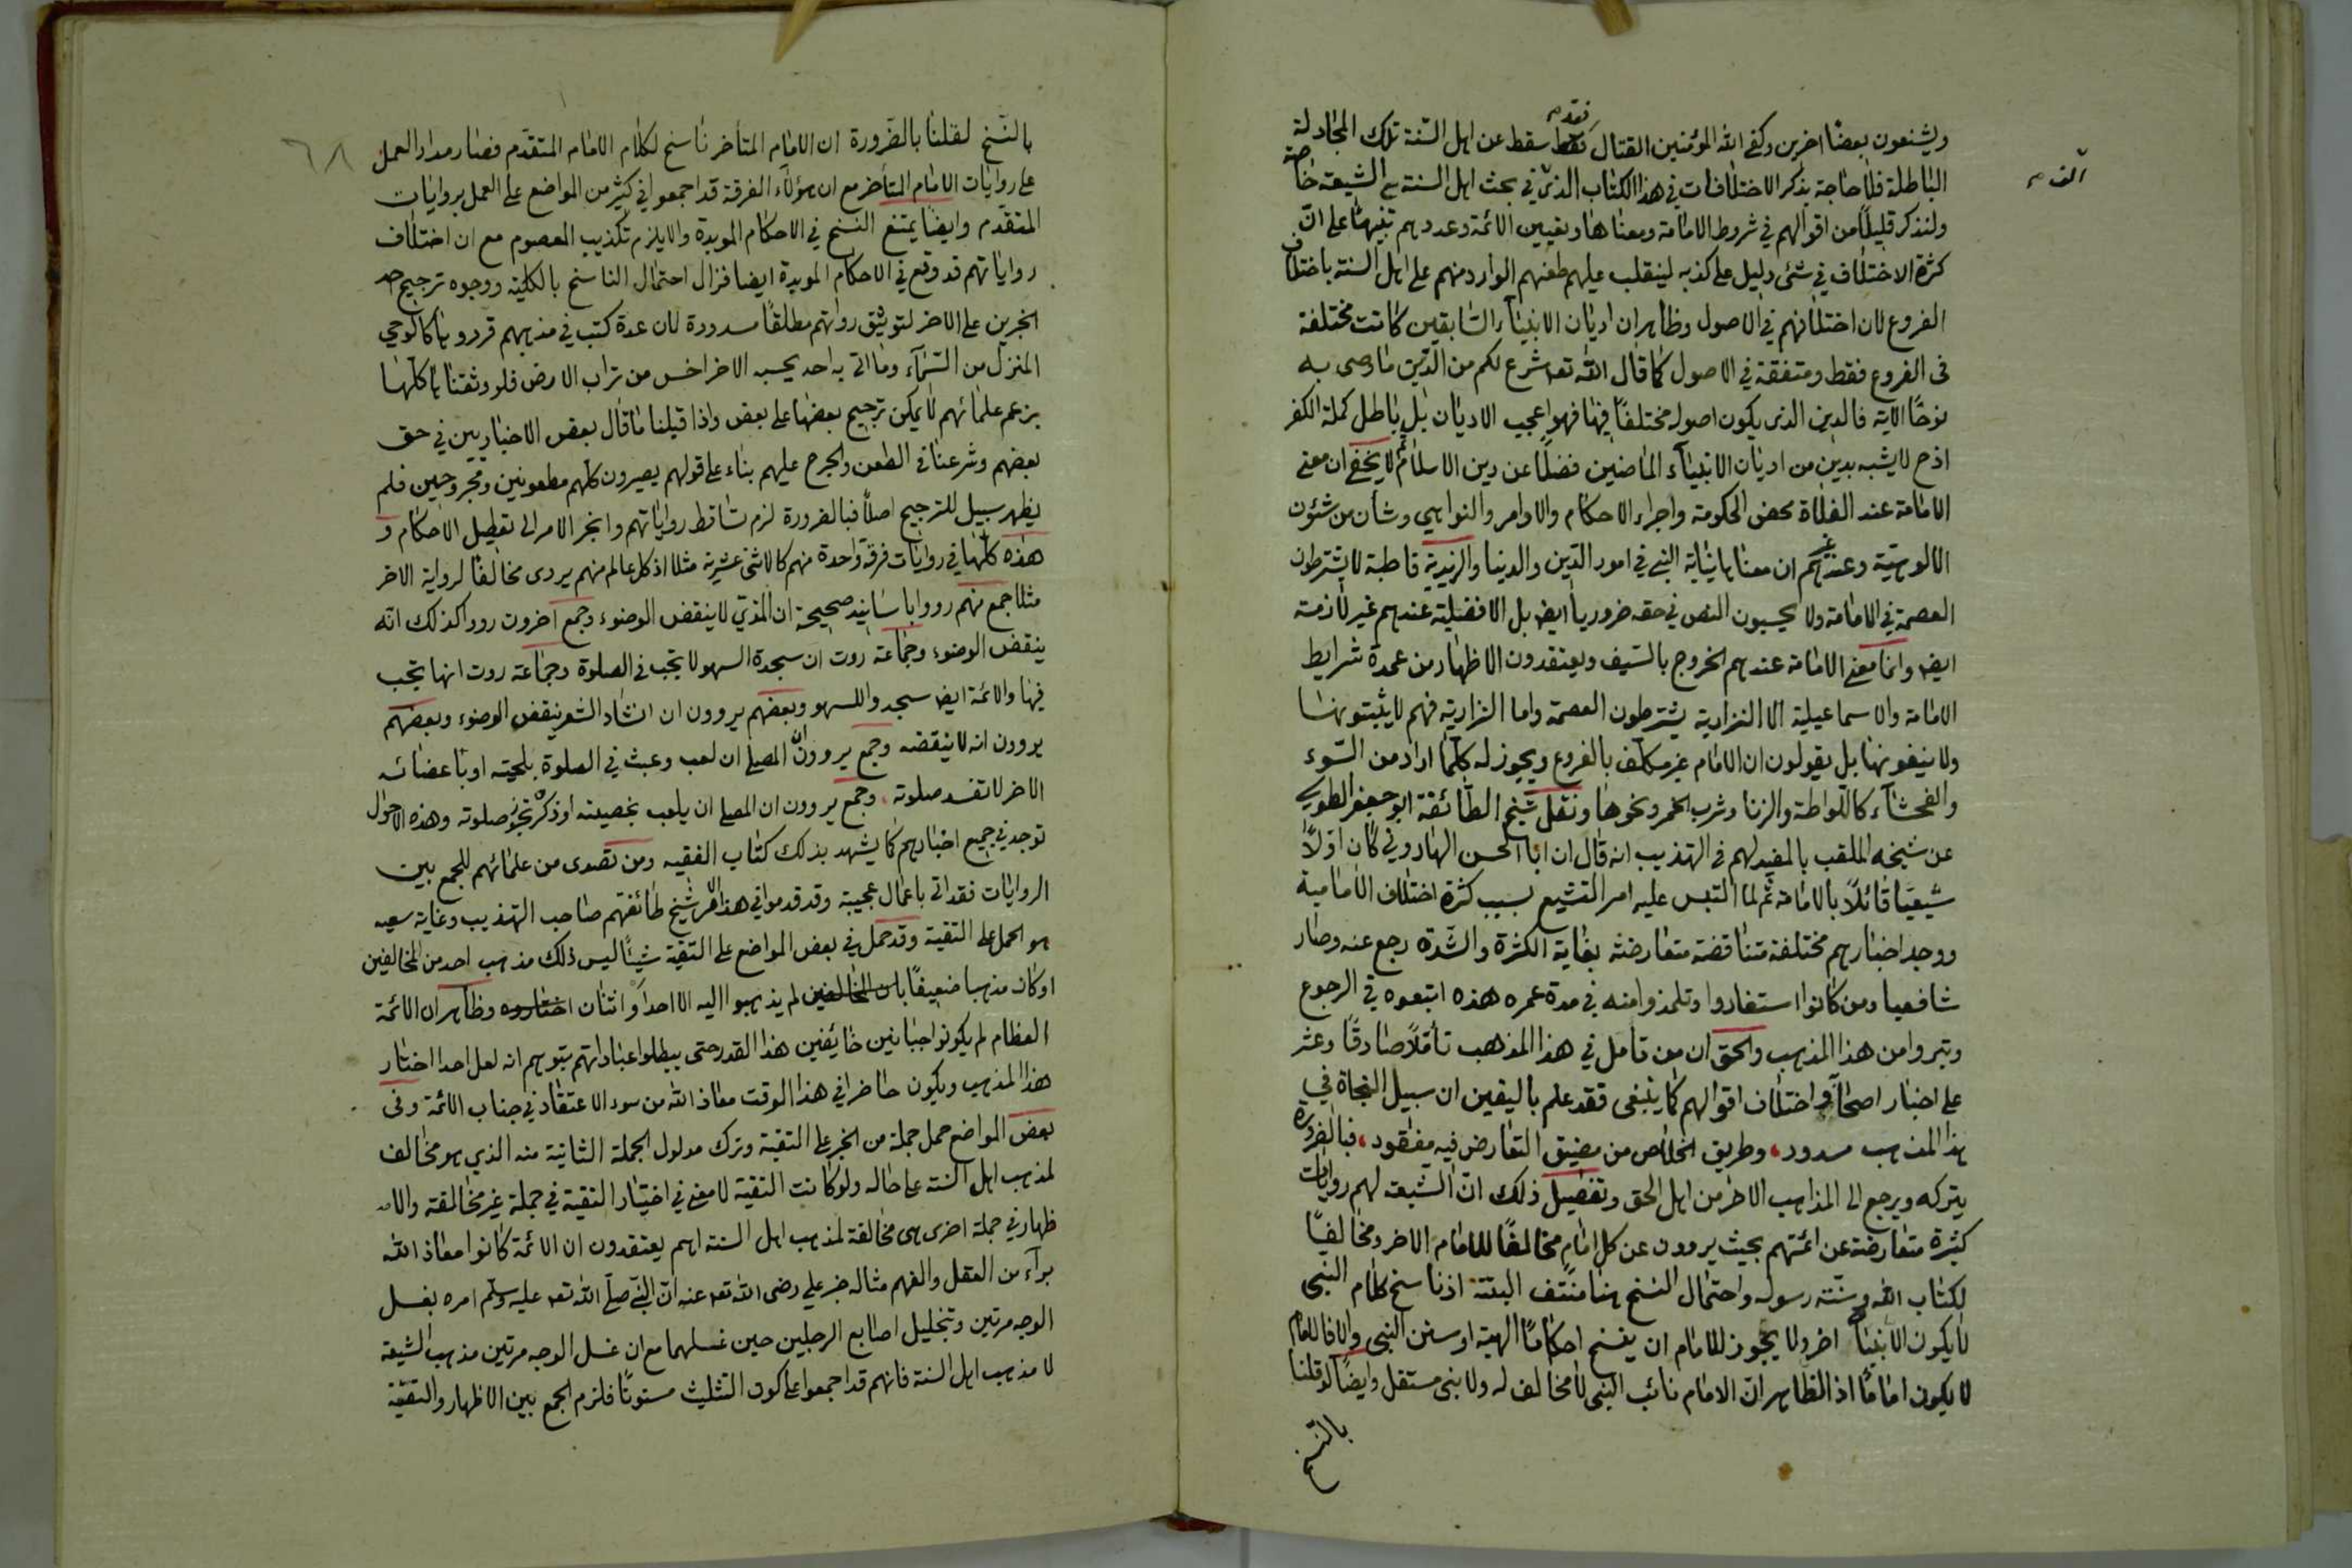 ويشنعون بعضا اخرين وكفى الله المؤمنين القتال فقد سقط عن اهل السنة تلك المجادلة
الباطلة فلا حاجة بذكر الاختلافات في هذا الكتاب الذي في بحث اهل السنة مع الشيعة خاصة
ولنذكر قليلا من اقوالهم في شروط الامامة ومعناها وتعيين الائمة وعددهم تنبيها على ان
كثرة الاختلاف في شئ دليل على كذبه لينقلب عليهم طعنهم الوارد منهم على اهل السنة باختلاف
الفروع لان اختلافهم في الاصول وظاهر ان اديان الانبياء السابقين كانت مختلفة
فى الفروع فقط ومتفقة في الاصول كما قال الله تعه شرع لكم من الدين ما وصى به
نوحا الاية فالدين الذى يكون اصوله مختلفا فيها فهو اعجب الاديان بل باطل كملة الكفر
اذح لا يشبه بدين من اديان الانبياء الماضين فضلا عن دين الاسلام ثم لا يخفى ان معنى
الامامة عند الغلاة محض الحكومة واجراء الاحكام والاوامر والنواهي وشأن من شئون
الالوهية وعند غيرهم ان معناها نيابة النبي في امور الدين والدنيا والزيدية قاطبة لا يشترطون
العصمة في الامامة ولا يحسبون النص في حقه ضروريا ايض بل الافضلية عندهم غير لازمة
ايض وانما معنى الامامة عندهم الخروج بالسيف ويعتقدون الاظهار من عمدة شرايط
الامامة والاسماعيلية الا النزارية يشترطون العصمة واما النزارية فهم لا يثبتونها
ولا ينفونها بل يقولون ان الامام غير مكلف بالفروع ويجوز له كلما اراد من السوء
والفحشاء كاللواطة والزنا وشرب الخمر ونحوها ونقل شيخ الطائفة ابو جعفر الطوسي
عن شيخه الملقب بالمفيد لهم في التهذيب انه قال ان ابا الحسن الهاروني كان اولا
شيعيا قائلا بالامامة ثم لما التبس عليه امر التشيع بسبب كثرة اختلاف الامامية
ووجد اخبارهم مختلفة متناقضة متعارضة بغاية الكثرة والشدة رجع عنه وصار
شافعيا ومن كانوا استفادوا وتلمذوا منه في مدة عمره هذه اتبعوه في الرجوع
وتبروا من هذا المذهب والحق ان من تأمل في هذا المذهب تأملا صادقا وعثر
على اخبار اصحابه واختلاف اقوالهم كما ينبغى فقد علم باليقين ان سبيل النجاة في
هذا المذهب مسدود، وطريق الخلاص من مضيق التعارض فيه مفقود، فبالضرورة
يتركه ويرجع الى المذاهب الاخر من اهل الحق وتفصيل ذلك ان الشيعة لهم روايات
كثيرة متعارضة عن ائمتهم بحيث يروون عن كل امام مخالفا للامام الاخر ومخالفا
لكتاب الله وسنة رسوله واحتمال النسخ هنا منتف البتة اذ ناسخ كلام النبى
لا يكون الا نبيا اخر ولا يجوز للامام ان ينسخ احكاما الهية او سنن النبى والا فالامام
لا يكون اماما اذ الظاهر ان الامام نائب النبى لا مخالف له ولا نبى مستقل وايضا لو قلنا
بالنسخ
٦٨
بالنسخ لقلنا بالضرورة ان الامام المتأخر ناسخ لكلام الامام المتقدم فصار مدار العمل
على روايات الامام المتأخر مع ان هؤلاء الفرقة قد اجمعوا في كثير من المواضع على العمل بروايات
المتقدم وايضا يمتنع النسخ في الاحكام المويدة والا يلزم تكذيب المعصوم مع ان اختلاف
رواياتهم قد وقع في الاحكام المويدة ايضا فزال احتمال الناسخ بالكلية ووجوه ترجيح احد
الخبرين على الاخر لتوثيق رواتهم مطلقا مسدودة لان عدة كتب في مذهبهم قرروها كالوحي
المنزل من السماء وما اتى به احد يحسبه الاخر اخس من تراب الارض فلو وثقنا كلها
بزعم علمائهم لا يمكن ترجيح بعضها على بعض واذا قبلنا ما قال بعض الاخباريين في حق
بعضهم وشرعنا في الطعن والجرح عليهم بناء على قولهم يصيرون كلهم مطعونين ومجروحين فلم
يظهر سبيل للترجيح اصلا فبالضرورة لزم تساقط رواياتهم وانجر الامر الى تعطيل الاحكام و
هذه كلها في روايات فرقة واحدة منهم كالاثنى عشرية مثلا اذ كل عالم منهم يروى مخالفا لرواية الاخر
مثلا جمع منهم رووا باسانيد صحيحة ان المذي لا ينقض الوضوء وجمع اخرون رووا كذلك انه
ينقض الوضوء وجماعة روت ان سجدة السهو لا تجب في الصلوة وجماعة روت انها تجب
فيها والائمة ايض سجدوا للسهو وبعضهم يروون ان انشاد الشعر ينقض الوضوء وبعضهم
يروون انه لا ينقضه وجمع يروون ان المصلى ان لعب وعبث في الصلوة بلحيته او باعضائه
الاخر لا تفسد صلوته، وجمع يروون ان المصلى ان يلعب بخصيته او ذكره تجوز صلوته وهذه الاحوال
توجد في جميع اخبارهم كما يشهد بذلك كتاب الفقيه ومن تصدى من علمائهم للجمع بين
الروايات فقد اتى باعمال عجيبة وقد قدموا في هذا الامر شيخ طائفتهم صاحب التهذيب وغاية سعيه
هو الحمل على التقية وقد حمل في بعض المواضع على التقية شيئا ليس ذلك مذهب احد من المخالفين
او كان مذهبا ضعيفا بان المخالفين لم يذهبوا اليه الا احد او اثنان اختاروه وظاهر ان الائمة
العظام لم يكونوا جبانين خائفين هذا القدر حتى يبطلوا عباداتهم بتوهم انه لعل احدا اختار
هذا المذهب ويكون حاضرا في هذا الوقت معاذ الله من سوء الاعتقاد في جناب الائمة وفى
بعض المواضع حمل جملة من الخبر على التقية وترك مدلول الجملة الثانية منه الذي هو مخالف
لمذهب اهل السنة على حاله ولو كانت التقية لا معنى في اختيار التقية في جملة غير مخالفة والا
ظهار في جملة اخرى هى مخالفة لمذهب اهل السنة اهم يعتقدون ان الائمة كانوا معاذ الله
براء من العقل والفهم مثاله خبر على رضى الله تعه عنه ان النبى صلى الله تعه عليه وسلم امره بغسل
الوجه مرتين وتخليل اصابع الرجلين حين غسلهما مع ان غسل الوجه مرتين مذهب الشيعة
لا مذهب اهل السنة فانهم قد اجمعوا على كون التثليث مسنونا فلزم الجمع بين الاظهار والتقية